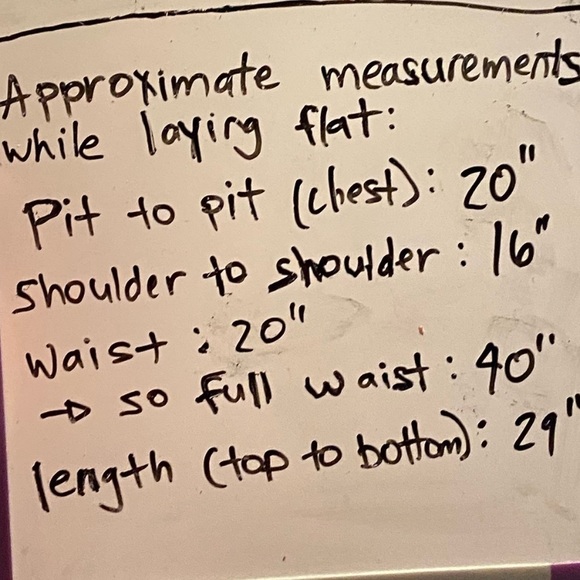 Approximate measurements
while laying flat:
Pit to pit (chest): 20"
shoulder to shoulder: 16"
waist: 20"
→ so full waist: 40"
length (top to bottom): 29"